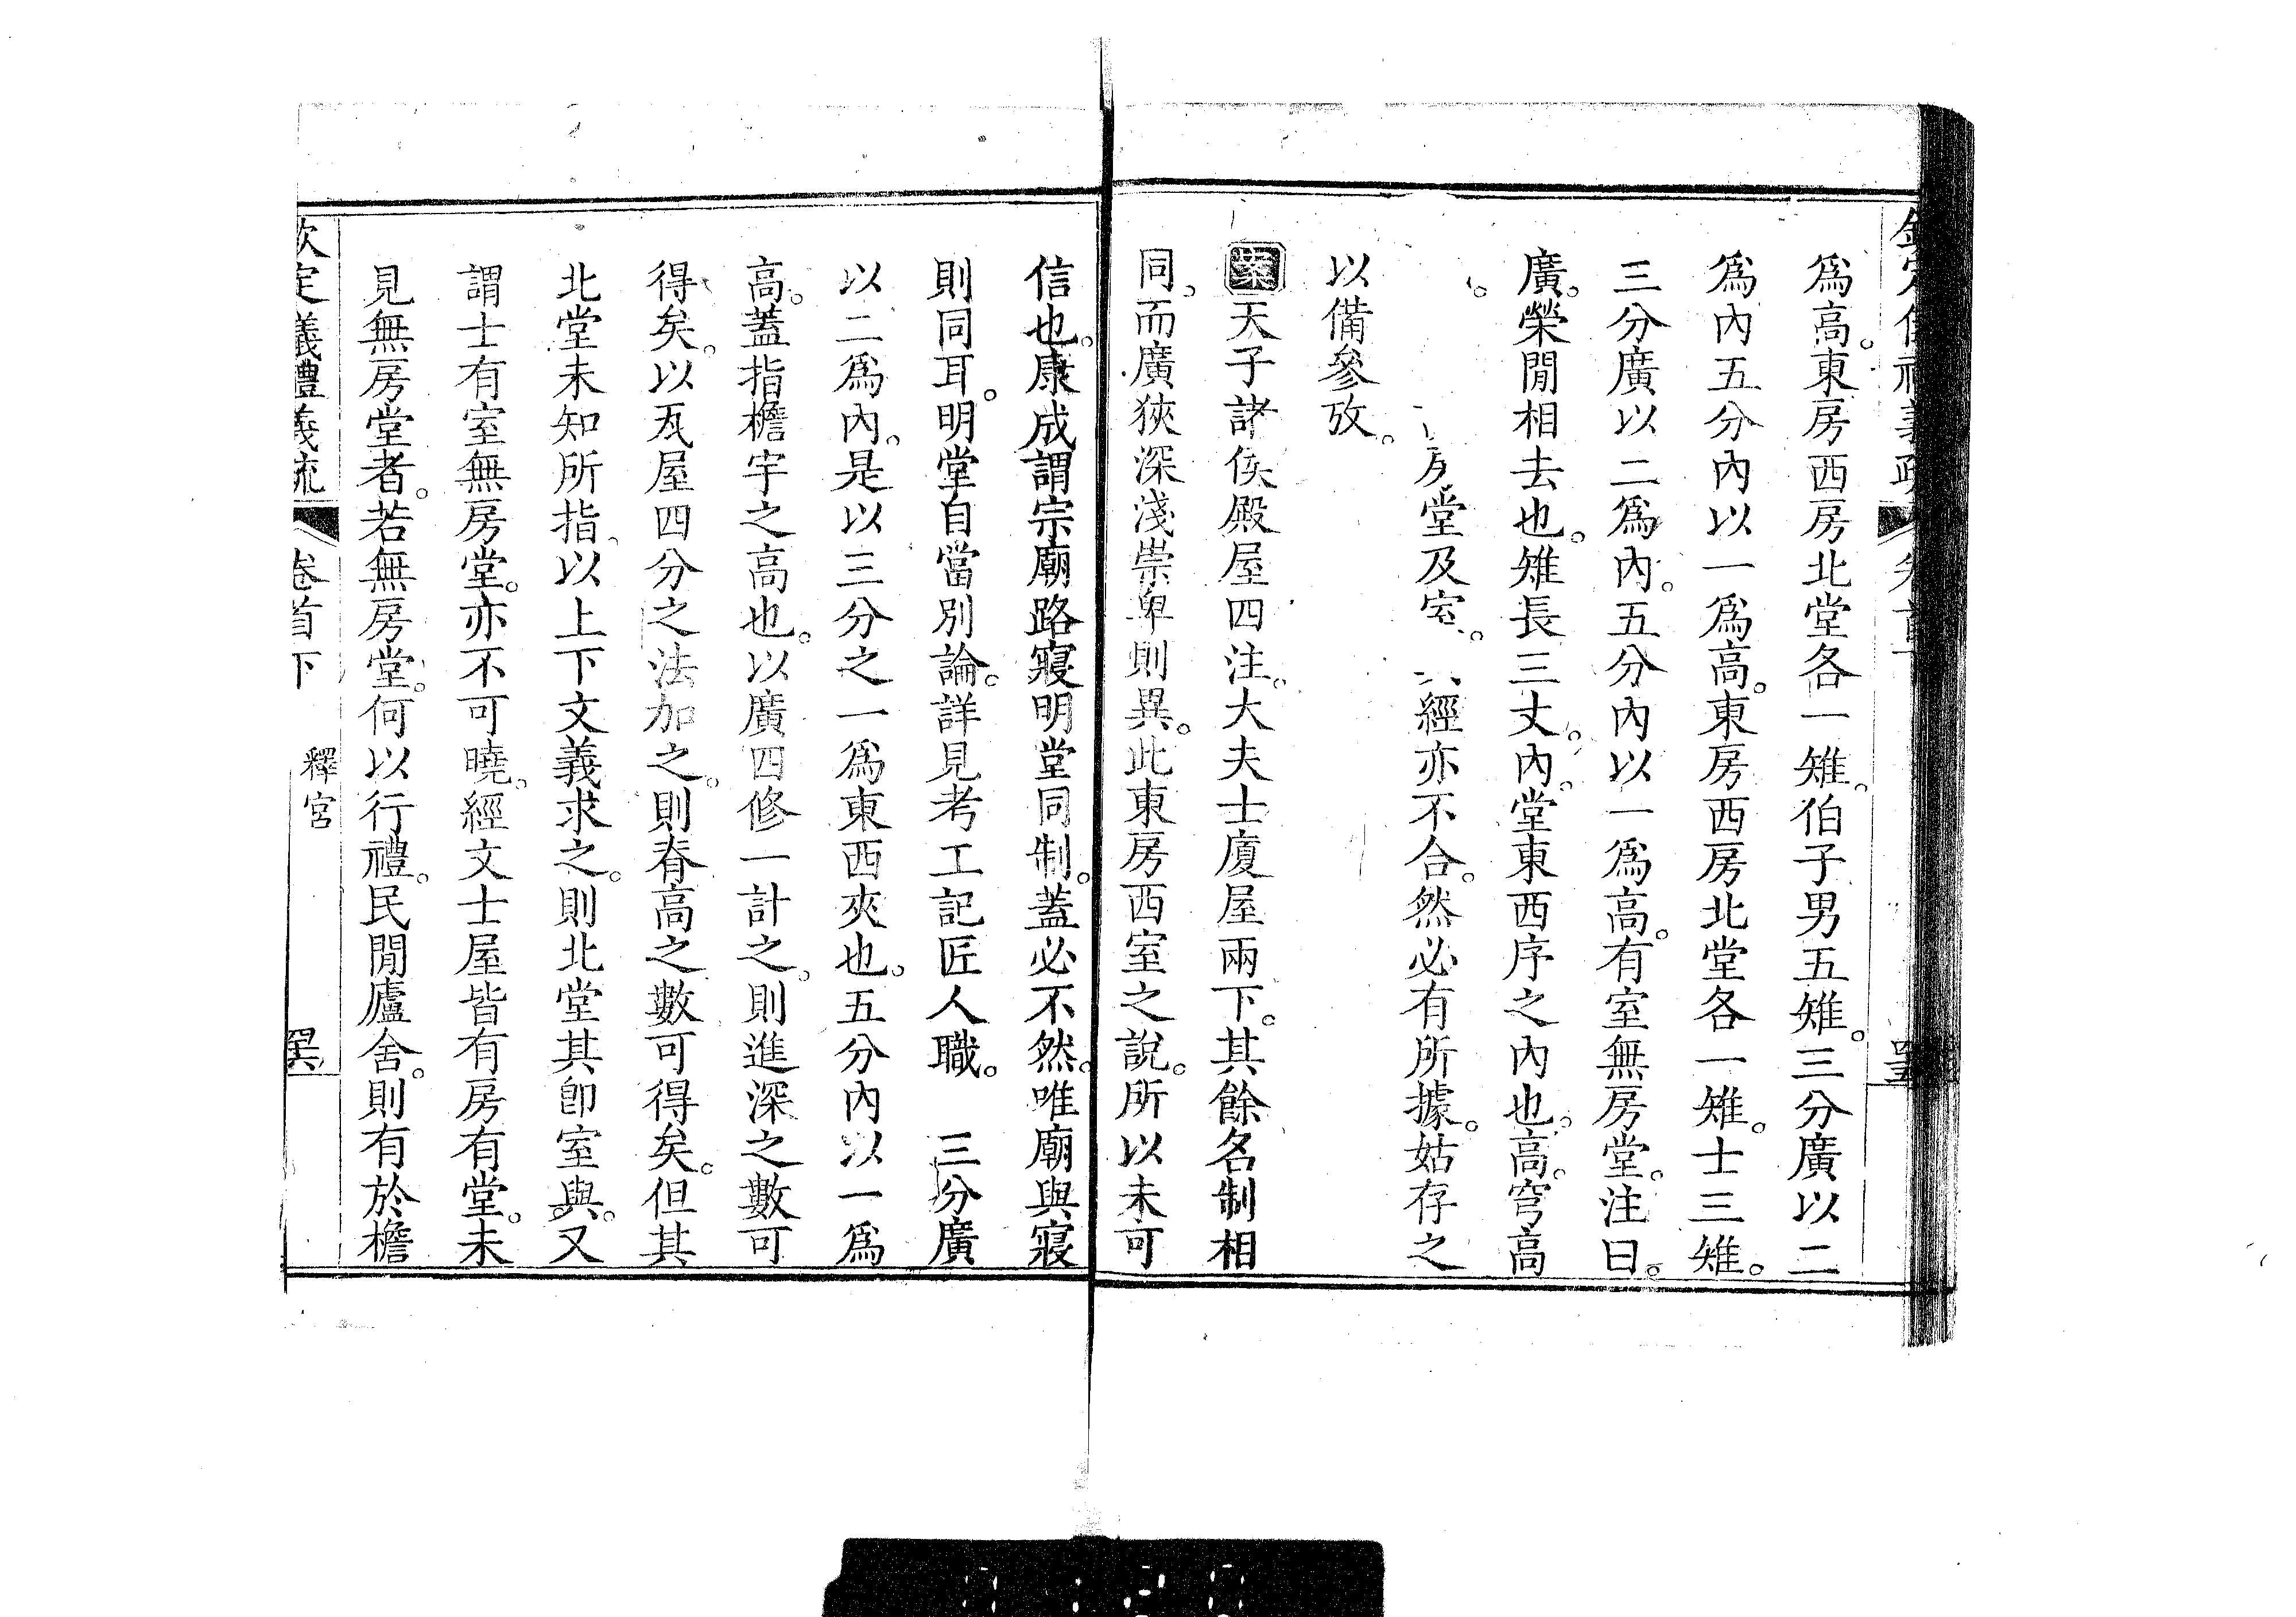 爲高。東房西房北堂各一雉。伯子男五雉。三分廣以二
爲內五分內以一爲高。東房西房北堂各一雉。士三雉。
三分廣以二爲內。五分內以一爲高。有室無房堂。注曰。
廣。榮閒相去也。雉長三丈。內。堂東西序之內也。高。穹高
堂及室。經亦不合。然必有所據。姑存之
以備參攷。
案天子諸侯殿屋四注。大夫士廈屋兩下。其餘名制相
同。而廣狹深淺崇卑則異。此東房西室之說。所以未可
信也。康成謂宗廟路寢明堂同制。蓋必不然。唯廟與寢
則同耳。明堂自當別論。詳見考工記匠人職。 三分廣
以二爲內。是以三分之一爲東西夾也。五分內以一爲
高。蓋指檐宇之高也。以廣四修一計之。則進深之數可
得矣。以瓦屋四分之法加之。則脊高之數可得矣。但其
北堂未知所指。以上下文義求之。則北堂其卽室與。又
謂士有室無房堂。亦不可曉。經文士屋皆有房有堂。未
見無房堂者。若無房堂。何以行禮。民閒廬舍。則有於檐
欽定儀禮義疏 卷首下 釋宮 罤